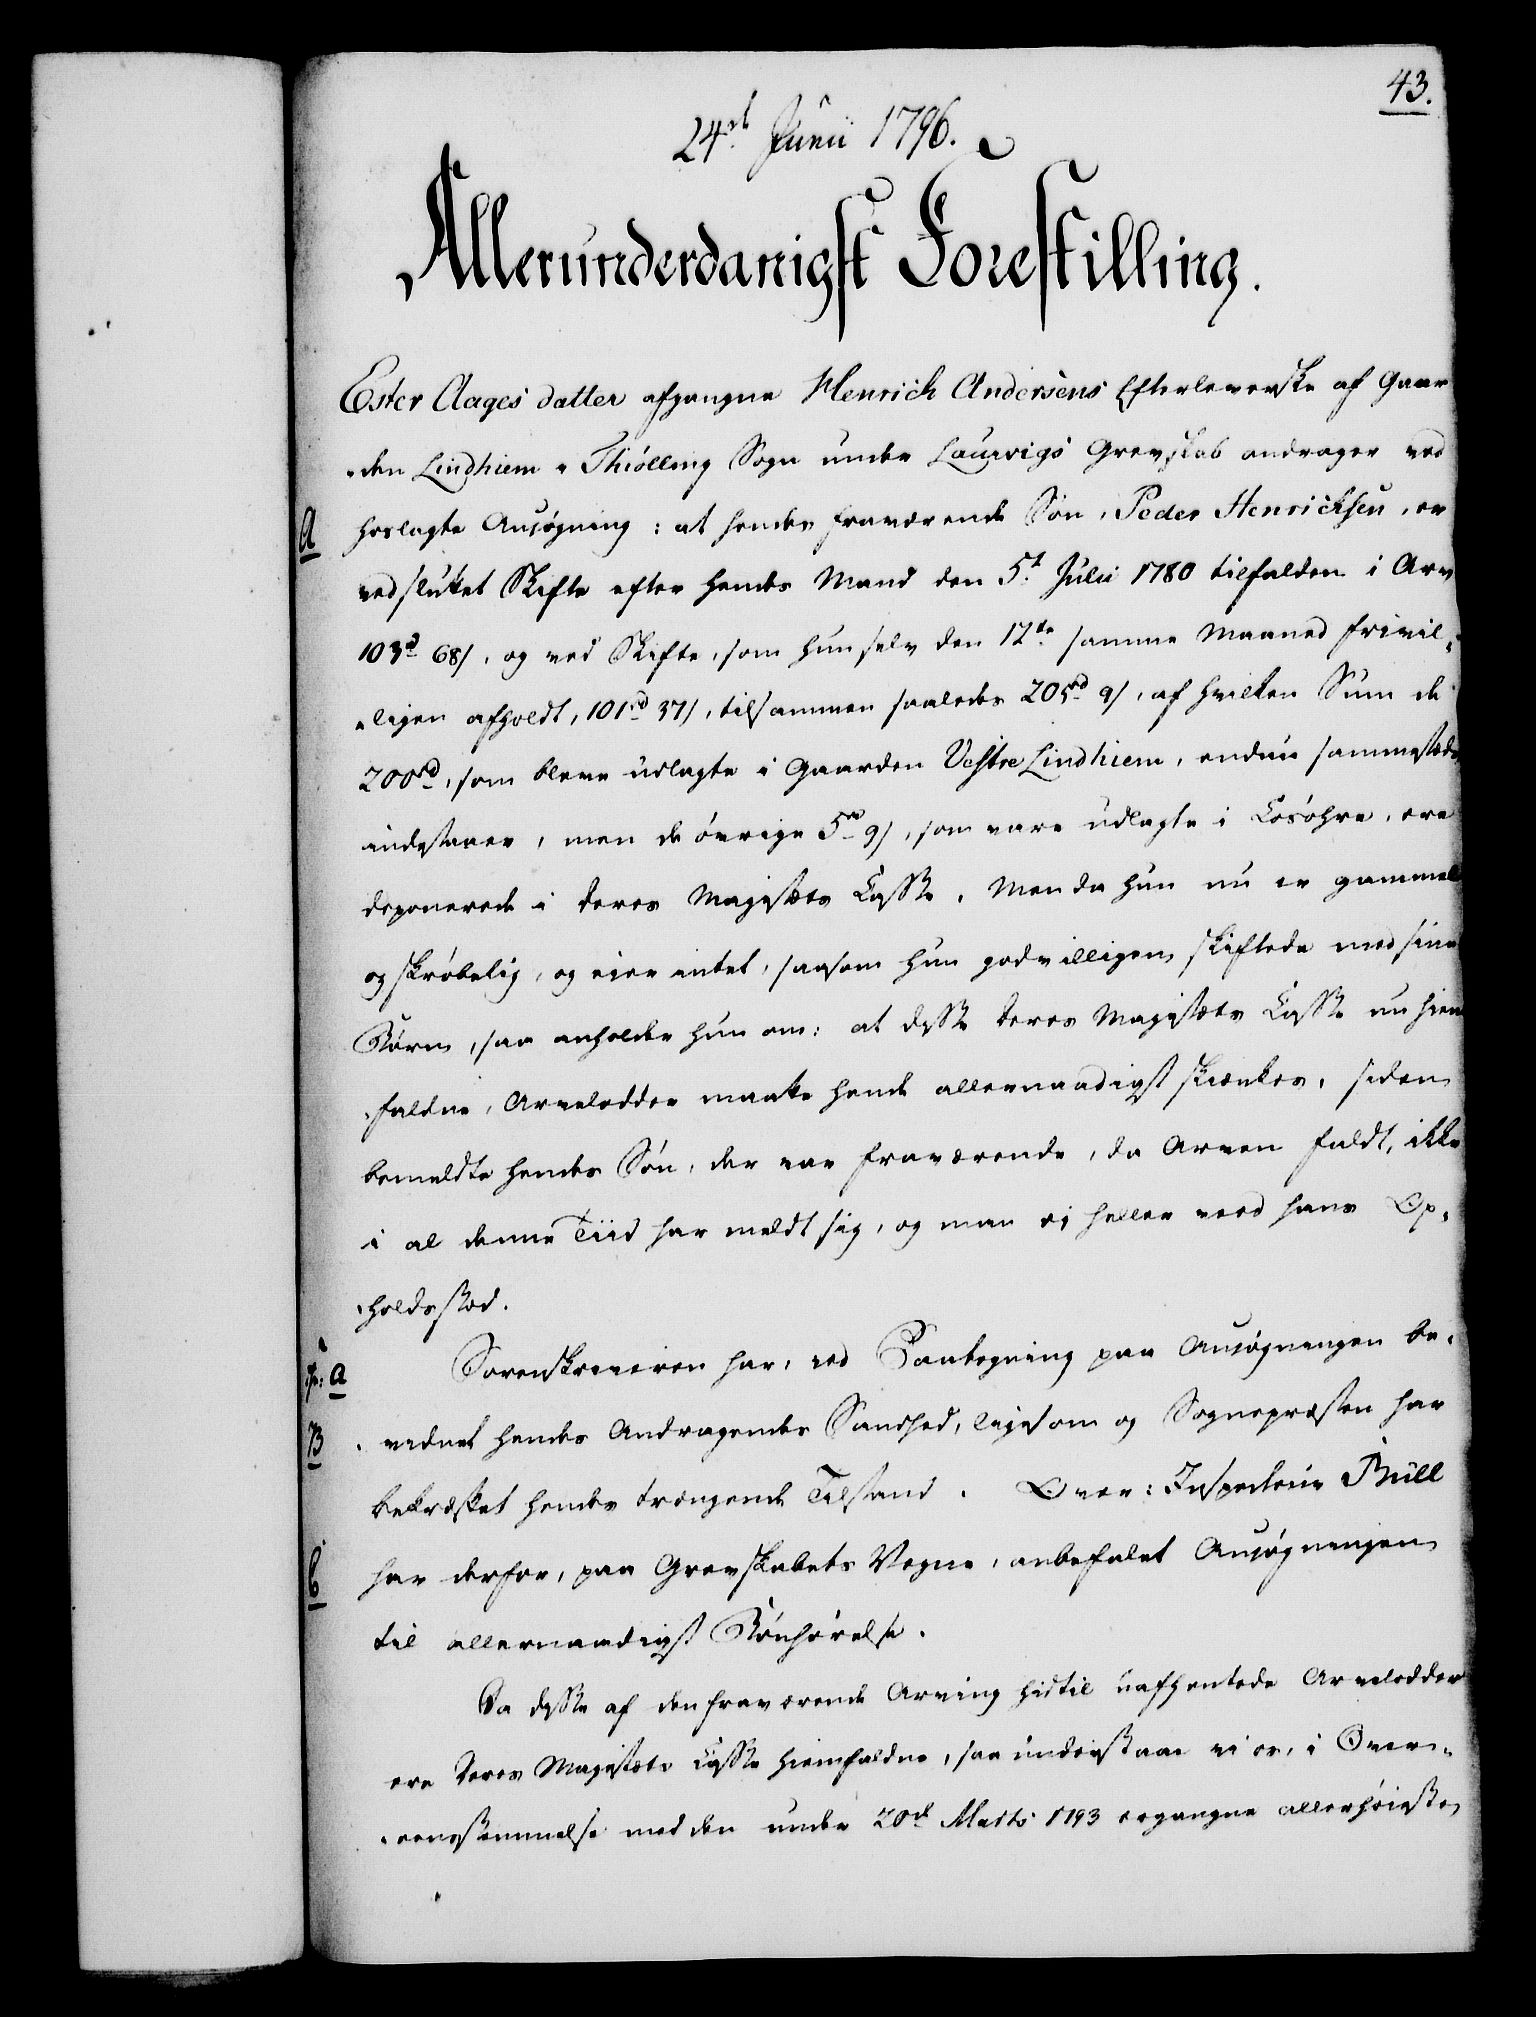 43.
24de Junii 1796.
Allerunderdanigst Forestilling.
Ester Aages datter afgangne Henrich Andersens Efterleverske af Gaar
-den Lindhiem i Thiølling Sogn under Laurvigs Grevskab andrager ved
A
hoslagte Ansøgning: at hendes fraværende Søn, Peder Henricksen, er
ved sluttet Skifte efter hendes Mand den 5t Julii 1780 tilfalden i Arv
103rd 68s, og ved Skifte, som hun selv den 12te samme Maaned frivil-
-ligen afholdt, 101rd 37s, tilsammen saaledes 205rd 9s, af hvilken Sum de
200rd, som bleve udlagte i Gaarden Vestre Lindhiem, endnu sammesteds
indestaaer, men de øvrige 5rd 9s, som vare udlagte i Løsøhre, ere
deponerede i Deres Majestæts Casse. Men da hun nu er gammel
og skrøbelig, og eier intet, saasom hun godvilligen skiftede med sine
Børn, saa anholder hun om: at disse Deres Majestæts Casse nu hiem
-faldne, Arvelodder maatte hende allernaadigst skienkes, siden
bemeldte hendes Søn, der var fraværende, da Arven faldt, ikke
i al denne Tiid har meldt sig, og man ej heller veed hans Op-
-holdsstæd.
a
Sorenskriveren har, ved Paategning paa Ansøgningen be-
B
-vidnet hendes Andragendes Sandhed, ligesom og Sognepræsten har
bekræftet hendes trængende Tilstand. Over-Inspecteur Bull
C
har derfor, paa Grevskabets Vegne, anbefalet Ansøgningen
til allernaadigst Bønhørelse.
Da disse af den fraværende Arving hidtil uafhentede Arvelodder
ere Deres Majestæts Casse hiemfaldne, saa understaae vi os, i Over-
-eensstemmelse med den under 20de Martii 1793 ergangne allerhøieste